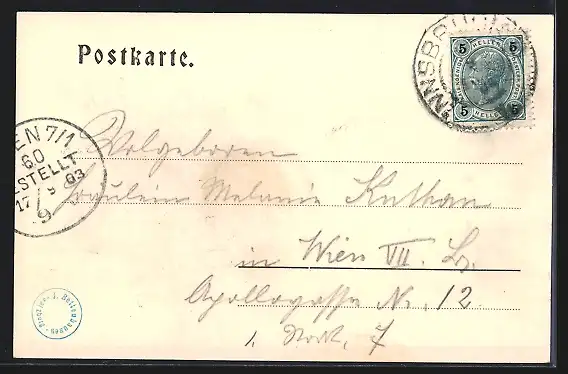 Postkarte.
INNSBRUCK
5 HELLER 5
5 HELLER 5
WIEN 7/1
60
BESTELLT
17 9 03
9
Wolgeboren
Fräulein Melanie Kuthan
in Wien VII. Bz.
Apollogasse Nr. 12
1. Stock, 7